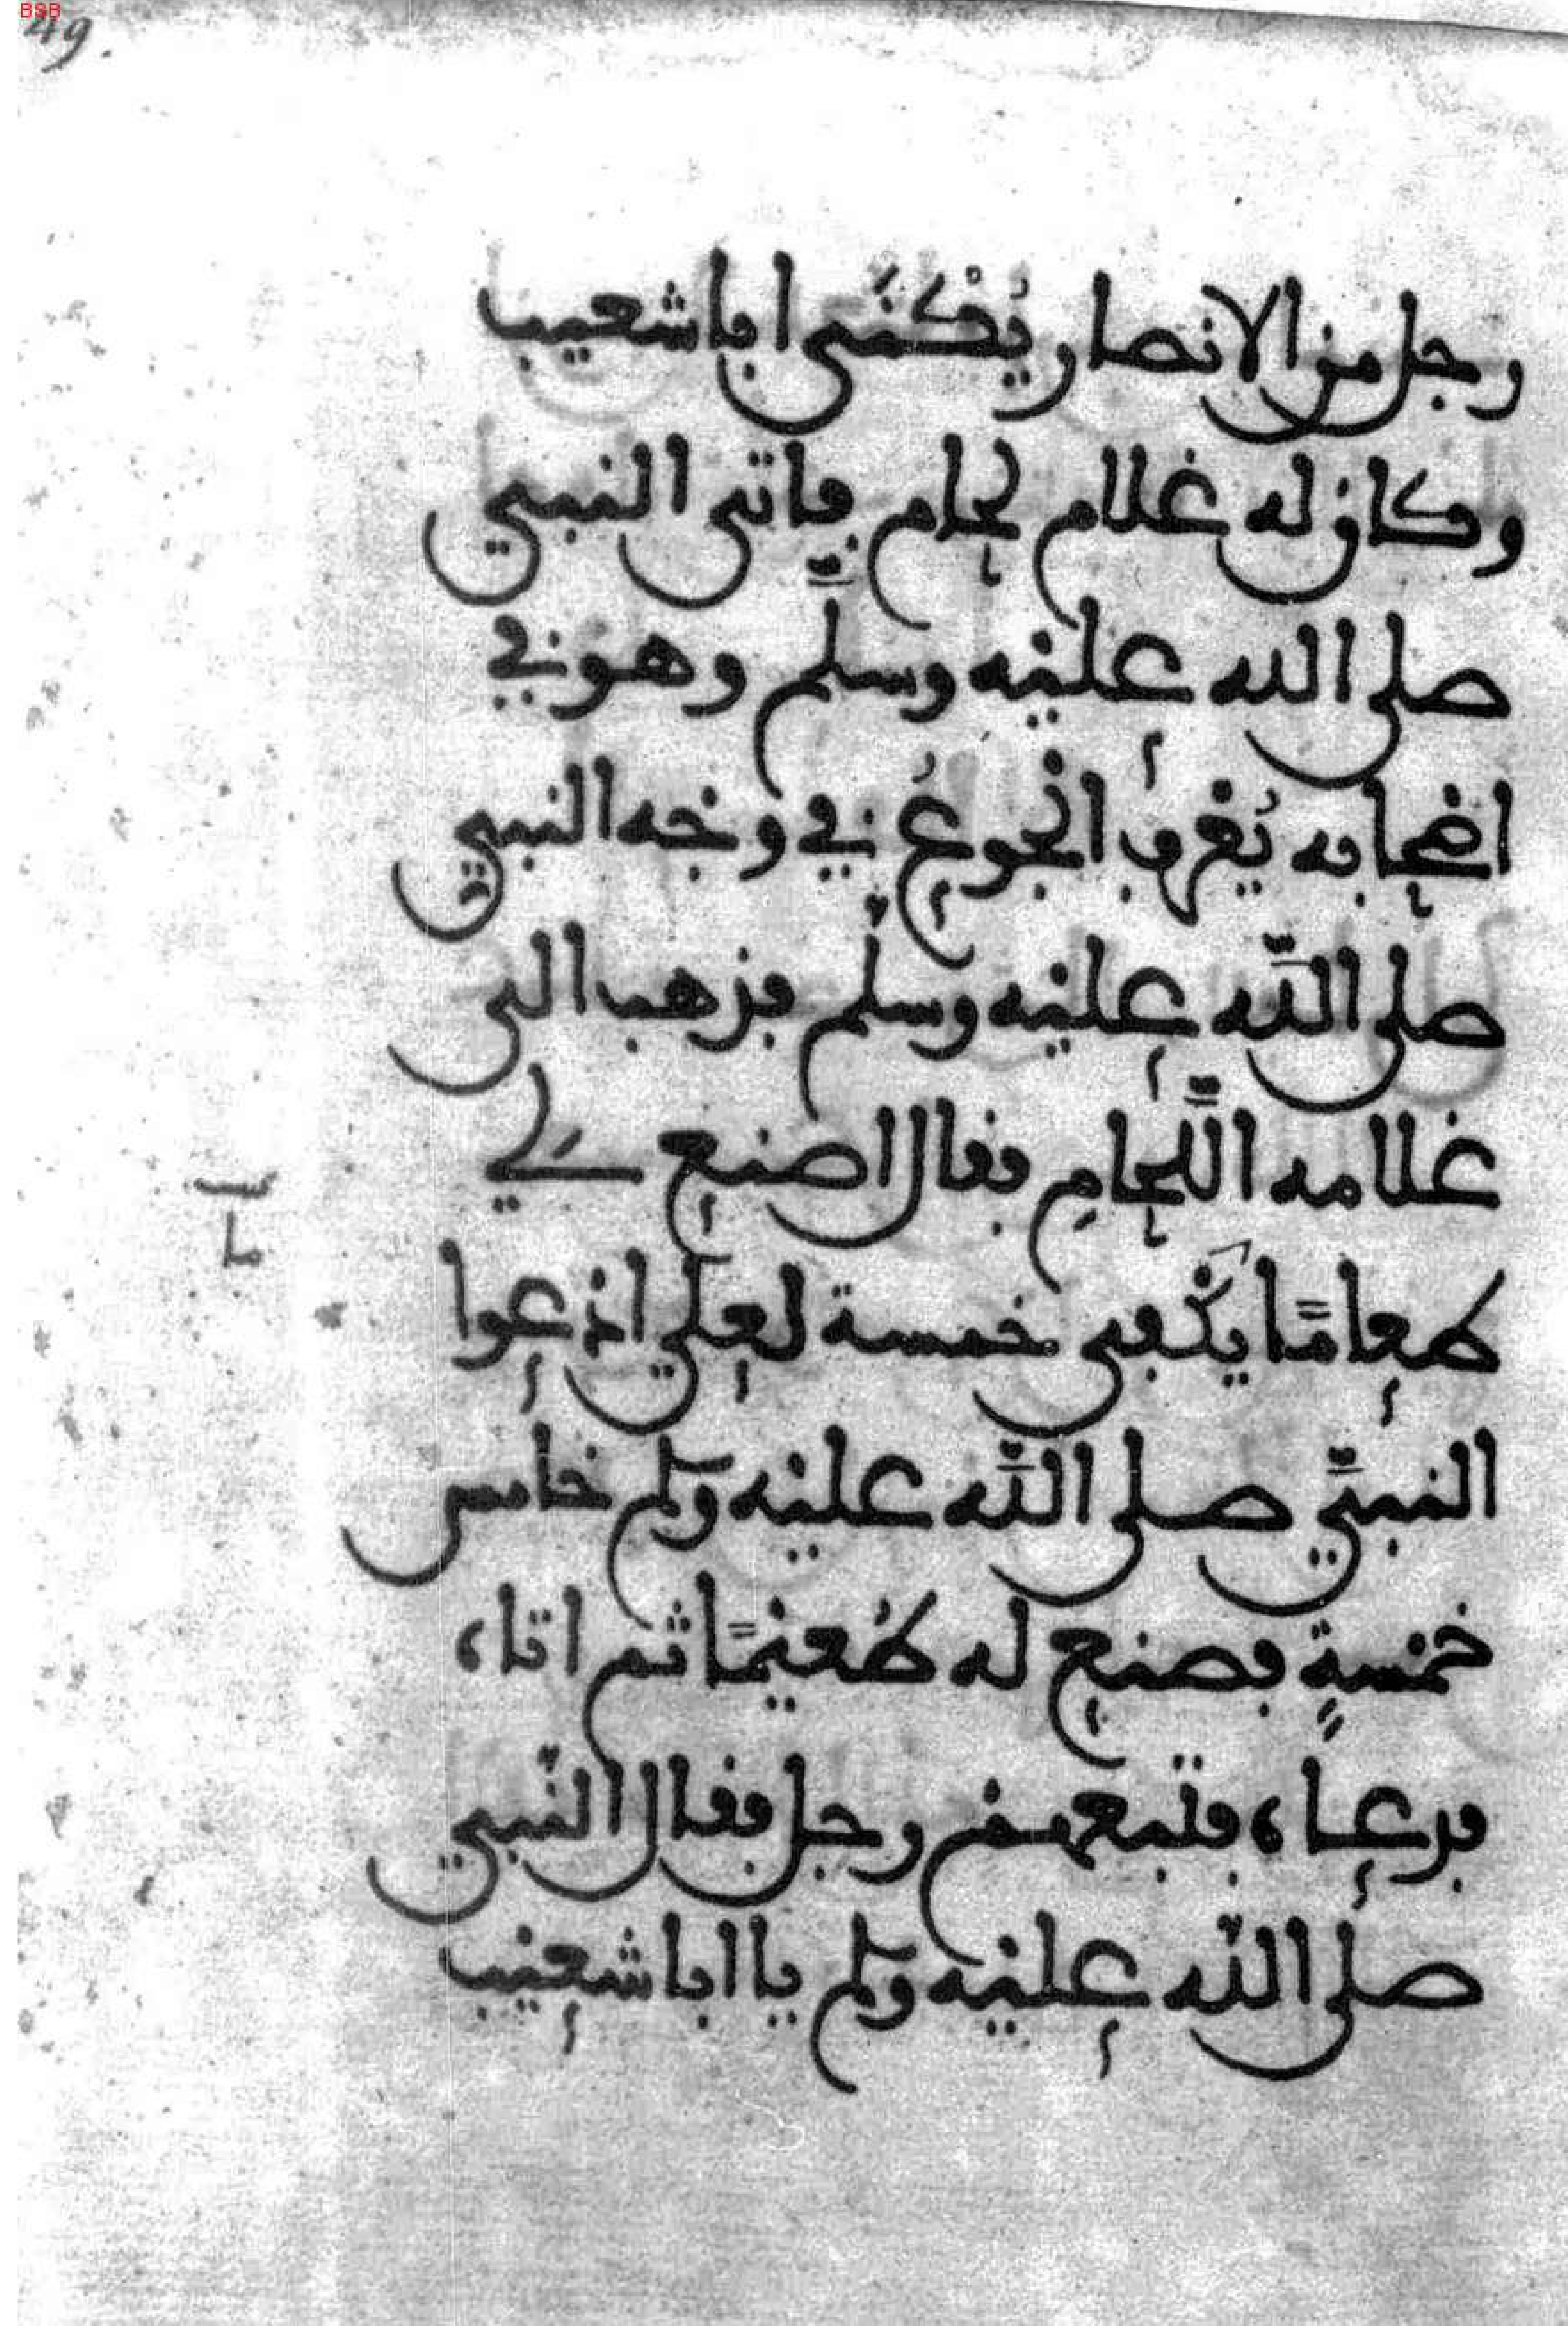 BSB
49.
رجل من الانصار يُكْنَّى ابا شعيب
وكان له غلام لحام فاتى النبي
صلى الله عليْه وسلَّم وهو في
اصْحابه يُعْرفُ الجْوعُ في وجْه النبي
صلى اللَّه عليْه وسلْم فذهب الى
غلامه اللَّحامِ فقال اصنع لي
طعامًا يكْفى خمسة لعلي ادْعوا
النبيَّ صلى اللَّه عليْه وسلم خامس
خمْسةٍ فصنع له طُعيْمًا ثم اتاه
فدعاه فتبعهمْ رجل فقال النّبي
صلى اللّه عليْه وسلم يا ابا شعيْب